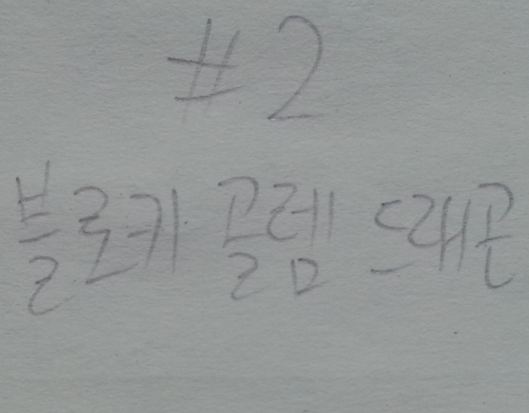 #2
블로키 골렘 드래곤